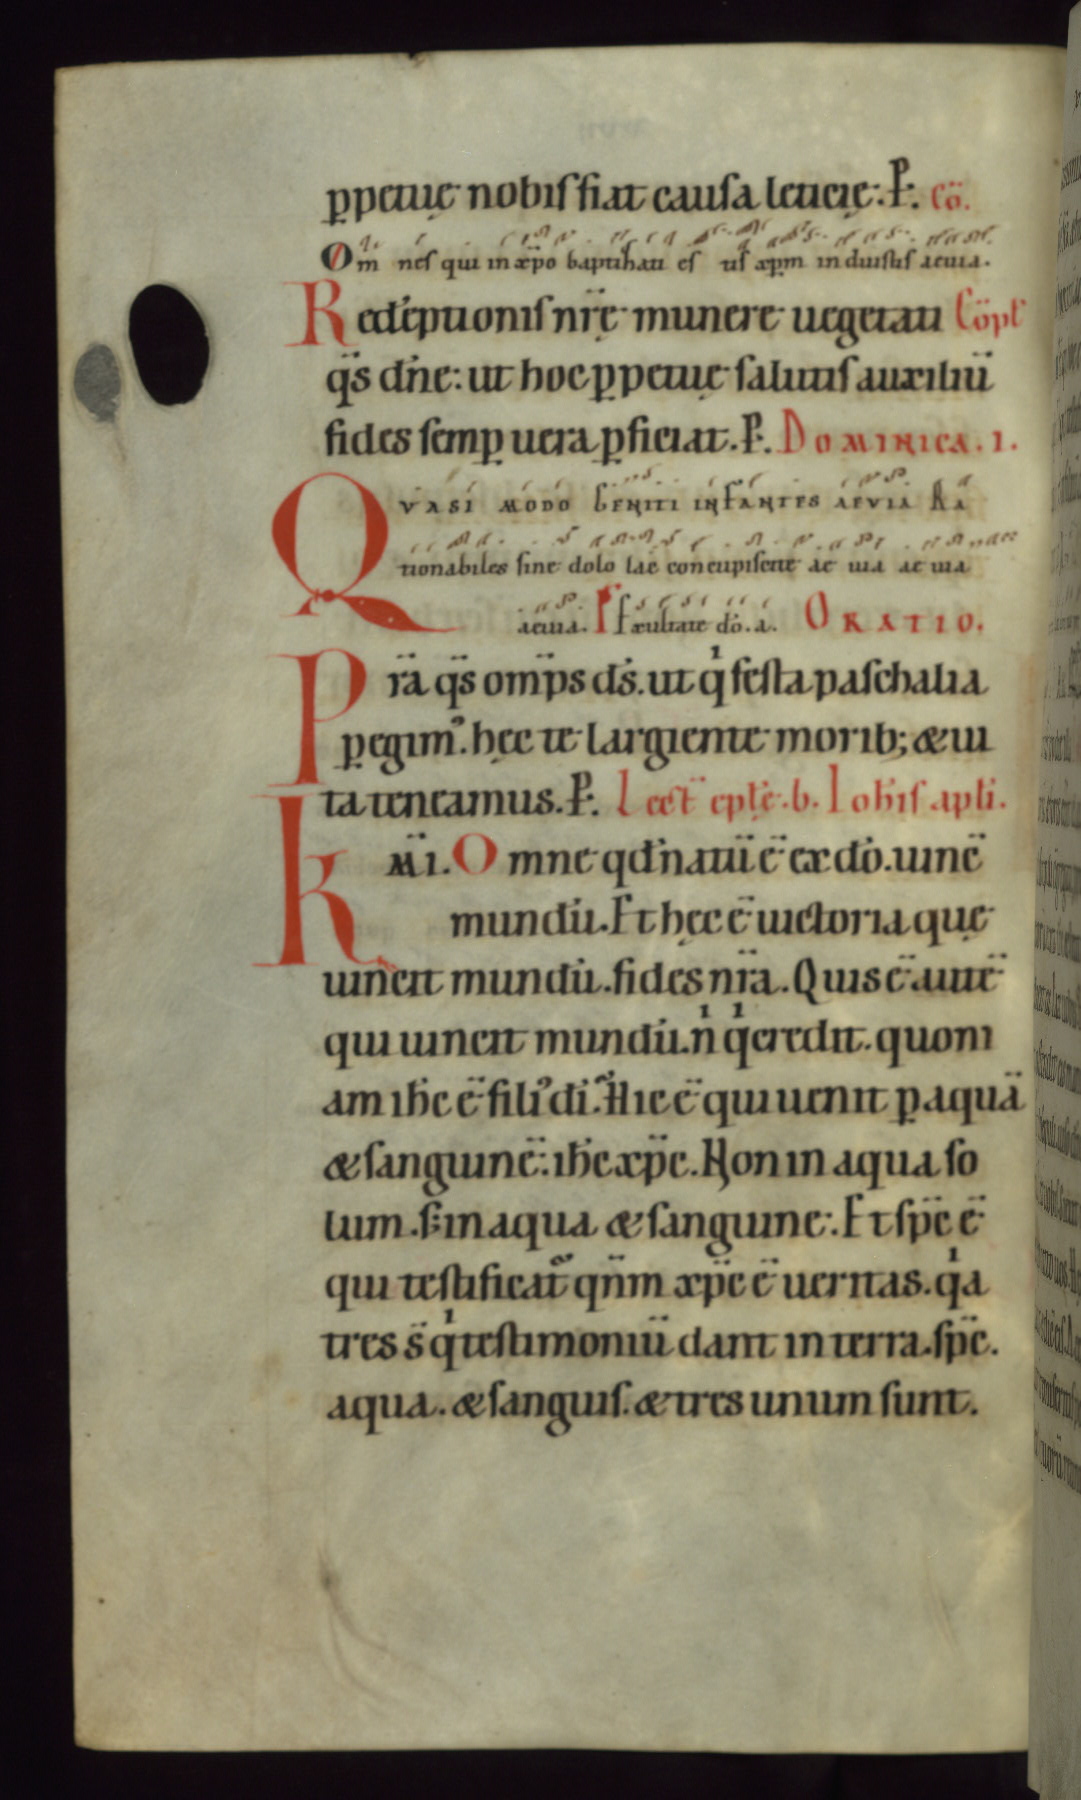 ꝑpetuę nobiſ fiat cauſa leticię: P̵. Cō.
Om nes qui in xp̄o baptizati es tiſ xp̄m induiſtiſ aeuia.
Redēptioniſ nr̄ę munere uegetati Cōpl̄
qs̄ dn̄e: ut hoc ꝑpetuę ſalutiſ auxiliū
fides ſemꝑ uera ꝑficiat. P̵. Dominica. i.
Quasi modo geniti infantes aeuia Ra
tionabiles ſine dolo lac concupiſcite ae uia ae uia
aeuia. P̄ſ exultate dō. a. Oratio.
Pr̄a qs̄ omp̄s dſ̄. ut qⁱ feſta paſchalia
ꝑegim᷒. hęc te largiente morib; & ui
ta teneamus. P̵. Lect̄ epl̄ę. b. Ioh̄iſ apl̄i.
Km̄i. Omne qd̄ natū ē ex dō. uincē
mundū. Et hęc ē uictoria quę
uincit mundū. fides nr̄a. Quis ē autē
qui uincit mundū. n̄ qⁱ credit. quoni
am ih̄c ē fili᷒ dī. Hic ē qui uenit ꝑ aquā
& ſanguinē: ih̄c xp̄c. Non in aqua ſo
lum. ſ; in aqua & ſanguine: Et ſp̄c ē
qui teſtificat᷑ qn̄m xp̄c ē ueritas. qⁱa
tres s̄ qⁱ teſtimoniū dant in terra. ſp̄c.
aqua. & ſanguiſ. & tres unum ſunt.